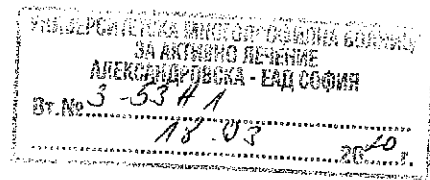 УНИВЕРСИТЕТСКА МНОГОПРОФИЛНА БОЛНИЦА
ЗА АКТИВНО ЛЕЧЕНИЕ
АЛЕКСАНДРОВСКА - ЕАД СОФИЯ
Вт.№ 3-53 # 1
18.03 2020 г.